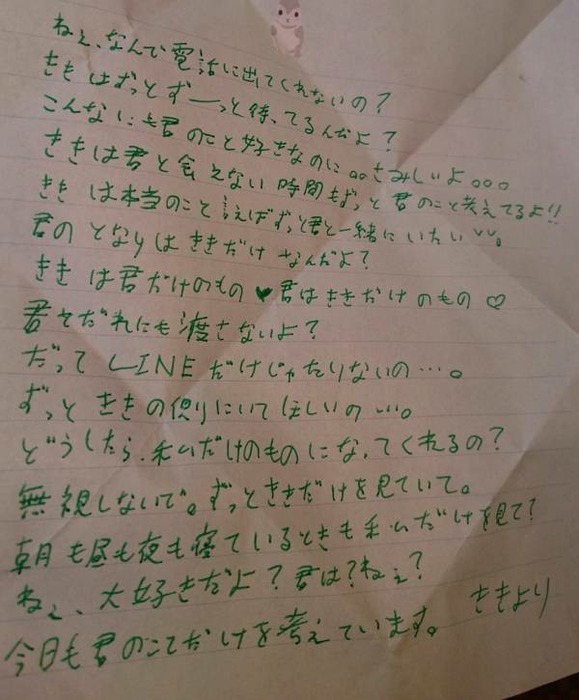 ねぇ、なんで電話に出てくれないの？
ききはずっとずーっと待ってるんだよ？
こんなにも君のこと好きなのに。。さみしいよ。。。
ききは君と会えない時間もずっと君のこと考えてるよ!!
ききは本当のこと言えばずっと君と一緒にいたいvv。
君のとなりはききだけなんだよ？
ききは君だけのもの♥君はききだけのもの♡
君をだれにも渡さないよ？
だってLINEだけじゃたりないの…。
ずっとききの側りにいてほしいの…。
どうしたら私だけのものになってくれるの？
無視しないで。ずっとききだけを見ていて。
朝も昼も夜も寝ているときも私だけを見て？
ねぇ、大好きだよ？君は？ねぇ？
ききより
今日も君のことだけを考えています。